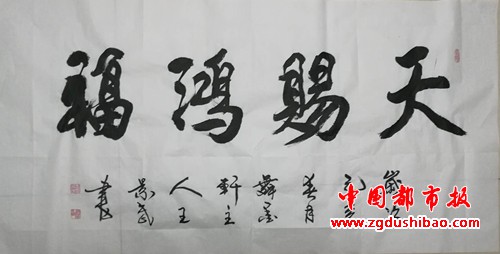 天賜鴻福
歲次
春月
舞墨
軒主
人王
書
中国都市报
www.zgdushibao.com